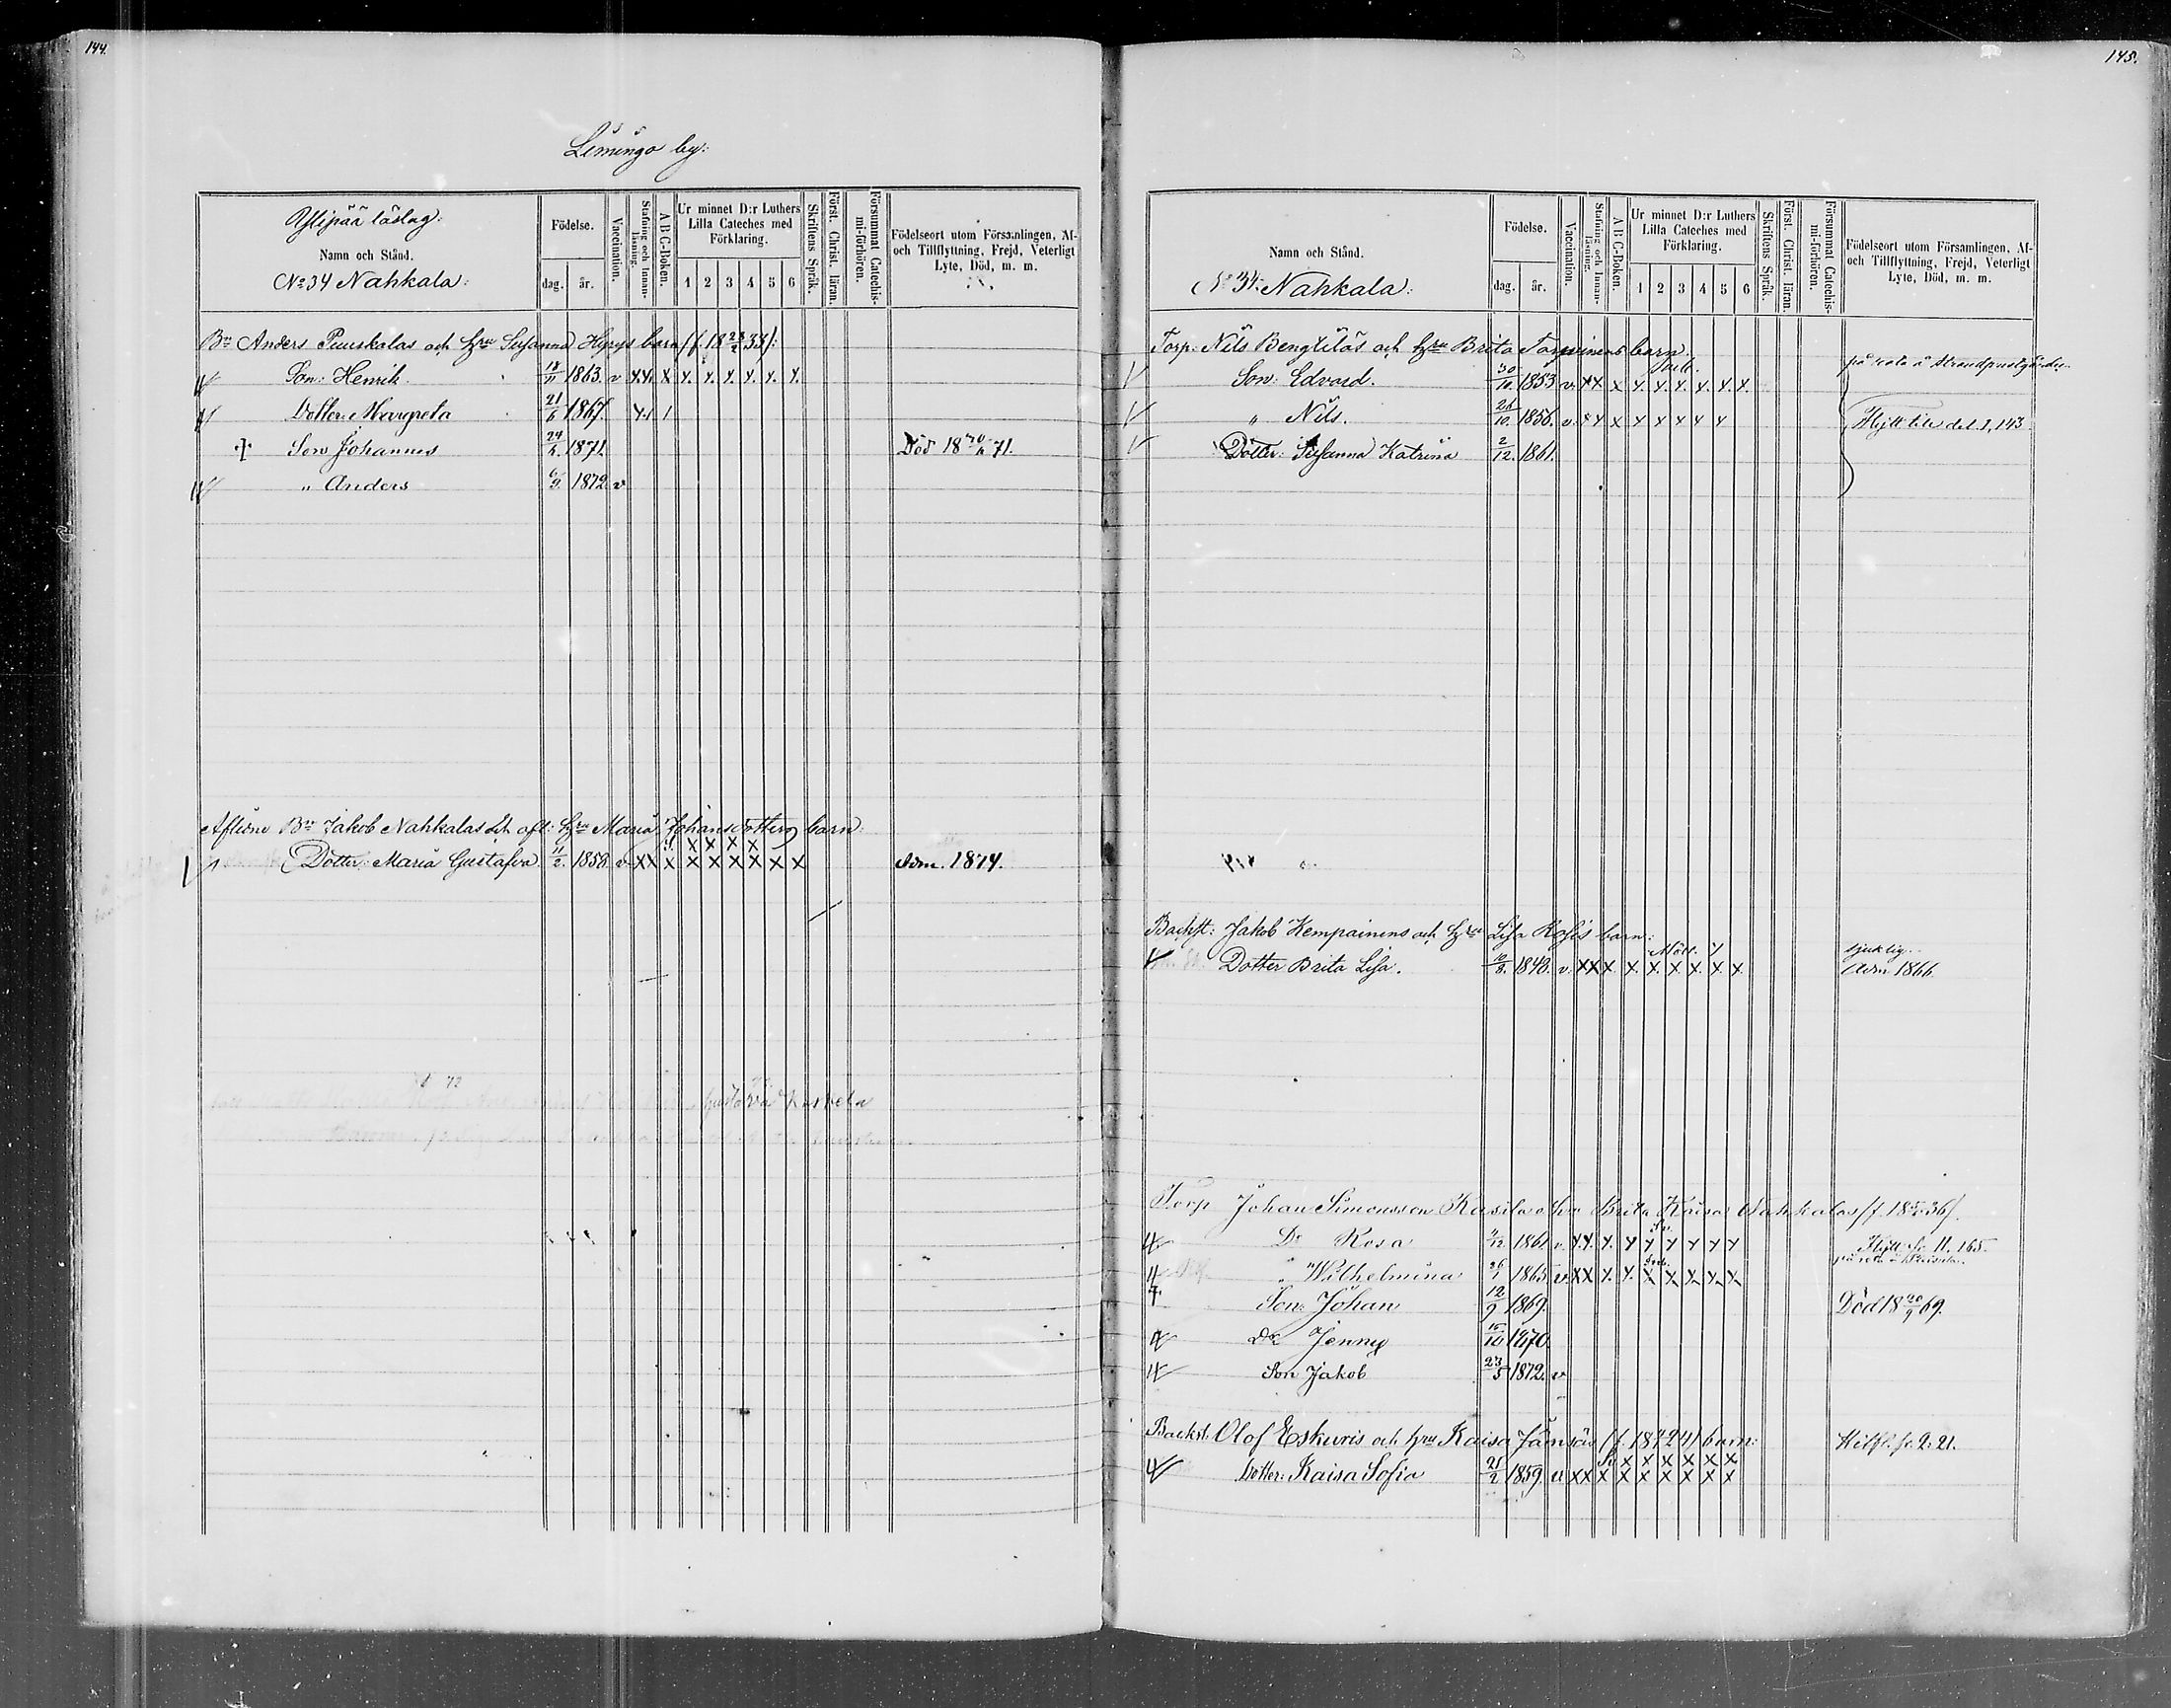 144.
Limingo by:
Ylipää läslag:
Namn och Stånd.
No 34 Nahkala:
Födelse.
dag. år.
Vaccination.
Stafning och Innan-läsning.
A B C-Boken.
Ur minnet D:r Luthers Lilla Cateches med Förklaring.
1 2 3 4 5 6
Skriftens Språk.
Först. Christ. läran.
Försummat Catechis-mi-förhören.
Födelseort utom Församlingen, Af- och Tillflyttning, Frejd, Veterligt Lyte, Död, m. m.
Bn Anders Puuskalas och hru Susanna Hyrys barn (f. 18 23/2 33):
Son: Henrik. 18/11 1863. v
Dotter: Margreta 21/6 1867.
Son Johannes 24/4 1871. Död 18 71.
" Anders 6/9 1872 v
Aflidne Bn Jakob Nahkalas och afl: hru Maria Johansdotters barn:
Dotter: Maria Gustafva 11/2 1858. v x x x x x x x x x Adm. 1874.
145.
Namn och Stånd.
No 34: Nahkala:
Födelse.
dag. år.
Vaccination.
Stafning och Innan-läsning.
A B C-Boken.
Ur minnet D:r Luthers Lilla Cateches med Förklaring.
1 2 3 4 5 6
Skriftens Språk.
Först. Christ. läran.
Försummat Catechis-mi-förhören.
Födelseort utom Församlingen, Af- och Tillflyttning, Frejd, Veterligt Lyte, Död, m. m.
Torp: Nils Bengtilas och hru Brita Torvinens barn.
Son: Edvard. 30/10 1853 v.
" Nils. 10. 1856. v. Flytt till del. 1, 143
Dotter: Susanna Katrina 2/12. 1861.
Backst: Jakob Kempainens och hru Lisa Rosis barn:
sjuklig.
Dotter Brita Lisa. 10/8. 1848. v. x x x x. x. x. x. x. x Adm 1866.
Torp Johan Simonsson Brita Kaisa Nahkalas
Dr Rosa 12. 1861. v. Flytt fr 11. 165.
" Wilhelmina 26/1 1865 v.
Son: Johan 12/9 1869. Död 18 20/9 69.
Dr Jenny 15/10 1870.
Son Jakob 23/5 1872. v
Backst. Olof Eskuris och hru Kaisa barn:
Dotter: Kaisa Sofia 21/2 1859. v x x x x x x x x x